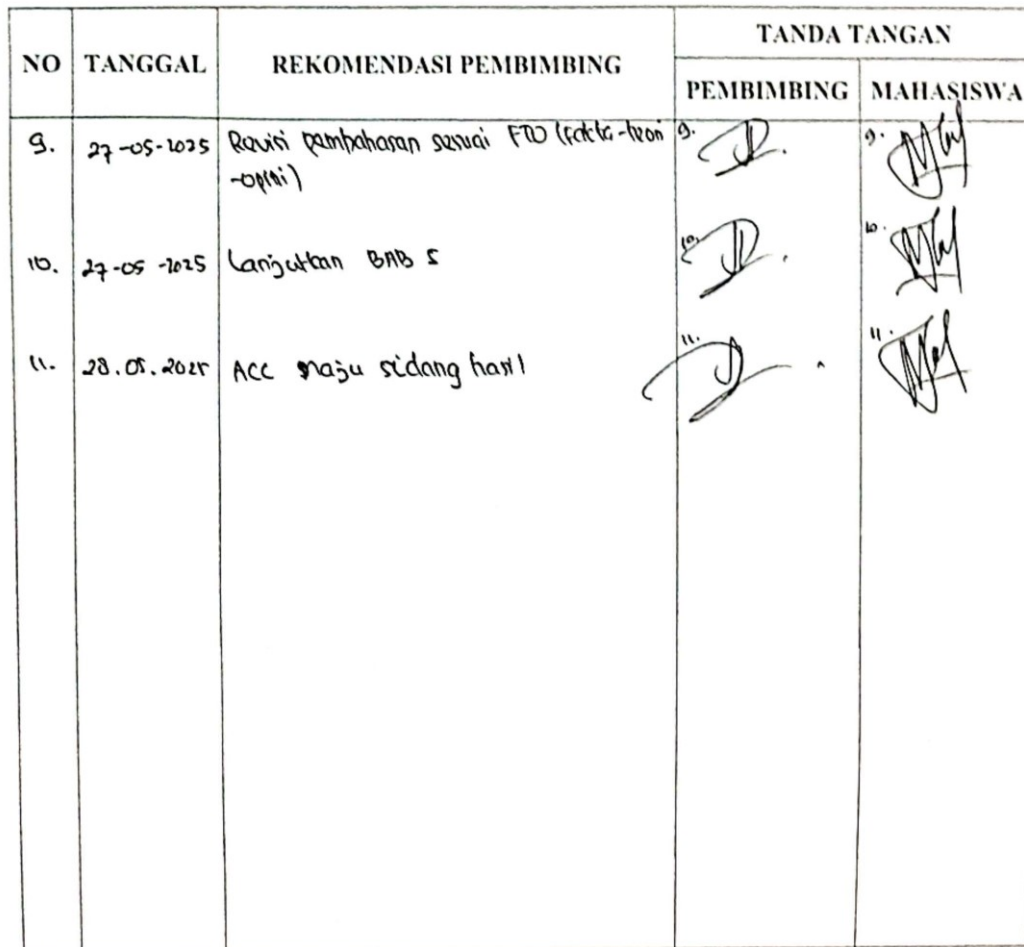 NO TANGGAL REKOMENDASI PEMBIMBING TANDA TANGAN
PEMBIMBING MAHASISWA
9. 27-05-2025 Revisi pembahasan sesuai FTO (fakta-teori 9. 9.
-opini)
10. 27-05-2025 Lanjutkan BAB 5 10. 10.
11. 28.05.2025 ACC maju sidang hasil 11. 11.